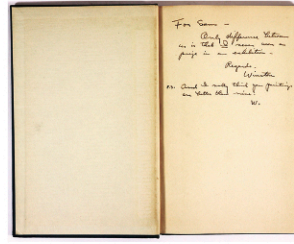 For Sam -
Only difference between
us is that I never won a
prize in an exhibition.
Regards,
Winston
P.S. And I really think your paintings
are better than mine!
W.